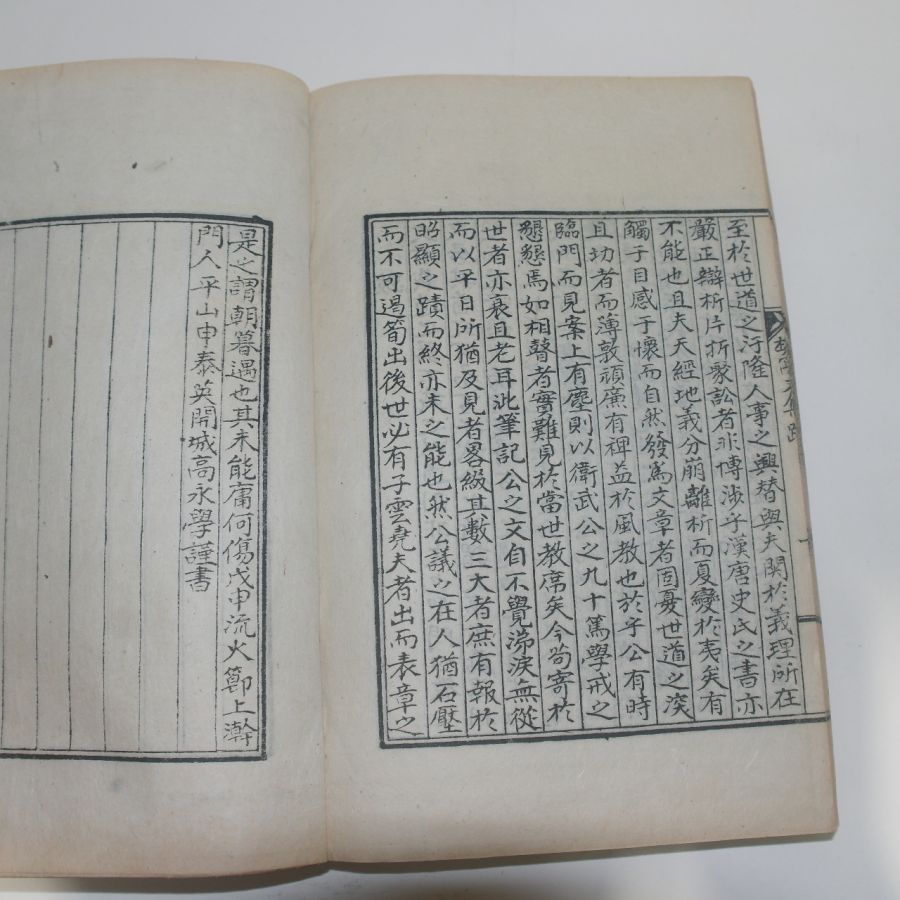 至於世道之汚隆人事之興替與夫関於義理所在
嚴正辯析片折衆訟者非博涉乎漢唐史氏之書亦
不能也且夫天經地義分崩離析而夏變於夷矣有
觸于目感于懷而自然發爲文章者固憂世道之深
且功者而薄敦頑廉有裨益於風教也於乎公有時
臨門而見案上有塵則以衛武公之九十篤學戒之
懇懇焉如相聲者實難見於當世教席矣今苟寄於
世者亦衰且老耳泚筆記公之文自不覺涕淚無從
而以平日所猶及見者畧綴其數三大者庶有報於
昭顯之蹟而終亦未之能也然公議之在人猶石壓
而不可遏筍出後世必有子雲堯夫者出而表章之
是之謂朝暮遇也其未能庸何傷戊申流火鄭上澣
門人平山申泰英開城高永學謹書